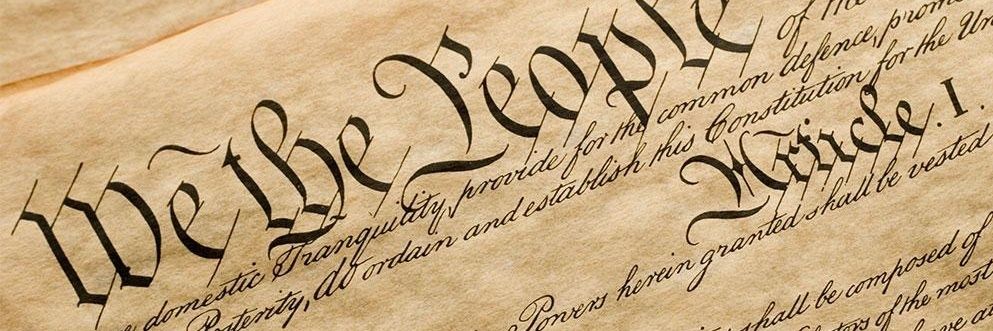 We the People
of the
domestic Tranquility, provide for the common defence, promo
Posterity, do ordain and establish this Constitution for the Un
Article. I.
Powers herein granted shall be vested
shall be composed of
of the most